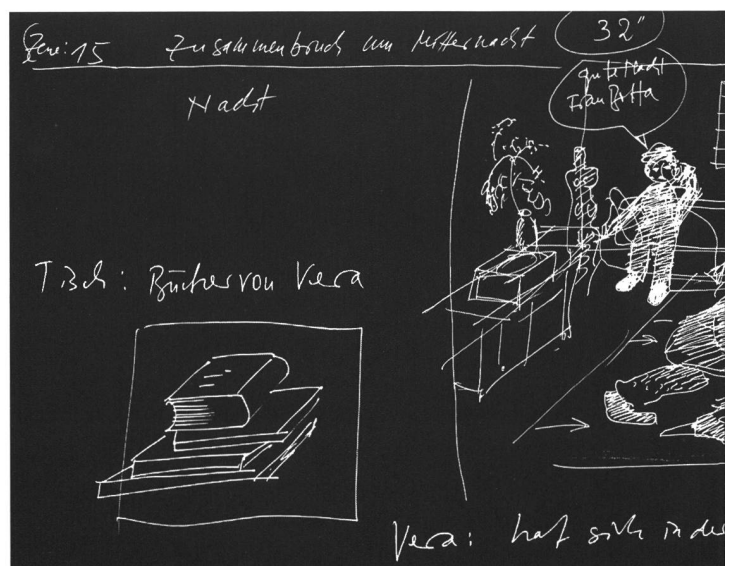 Szene: 15 Zusammenbruch um Mitternacht 32"
Nacht
gute Nacht
Frau
Tisch: Bücher von Vera
Vera: hat sich in de